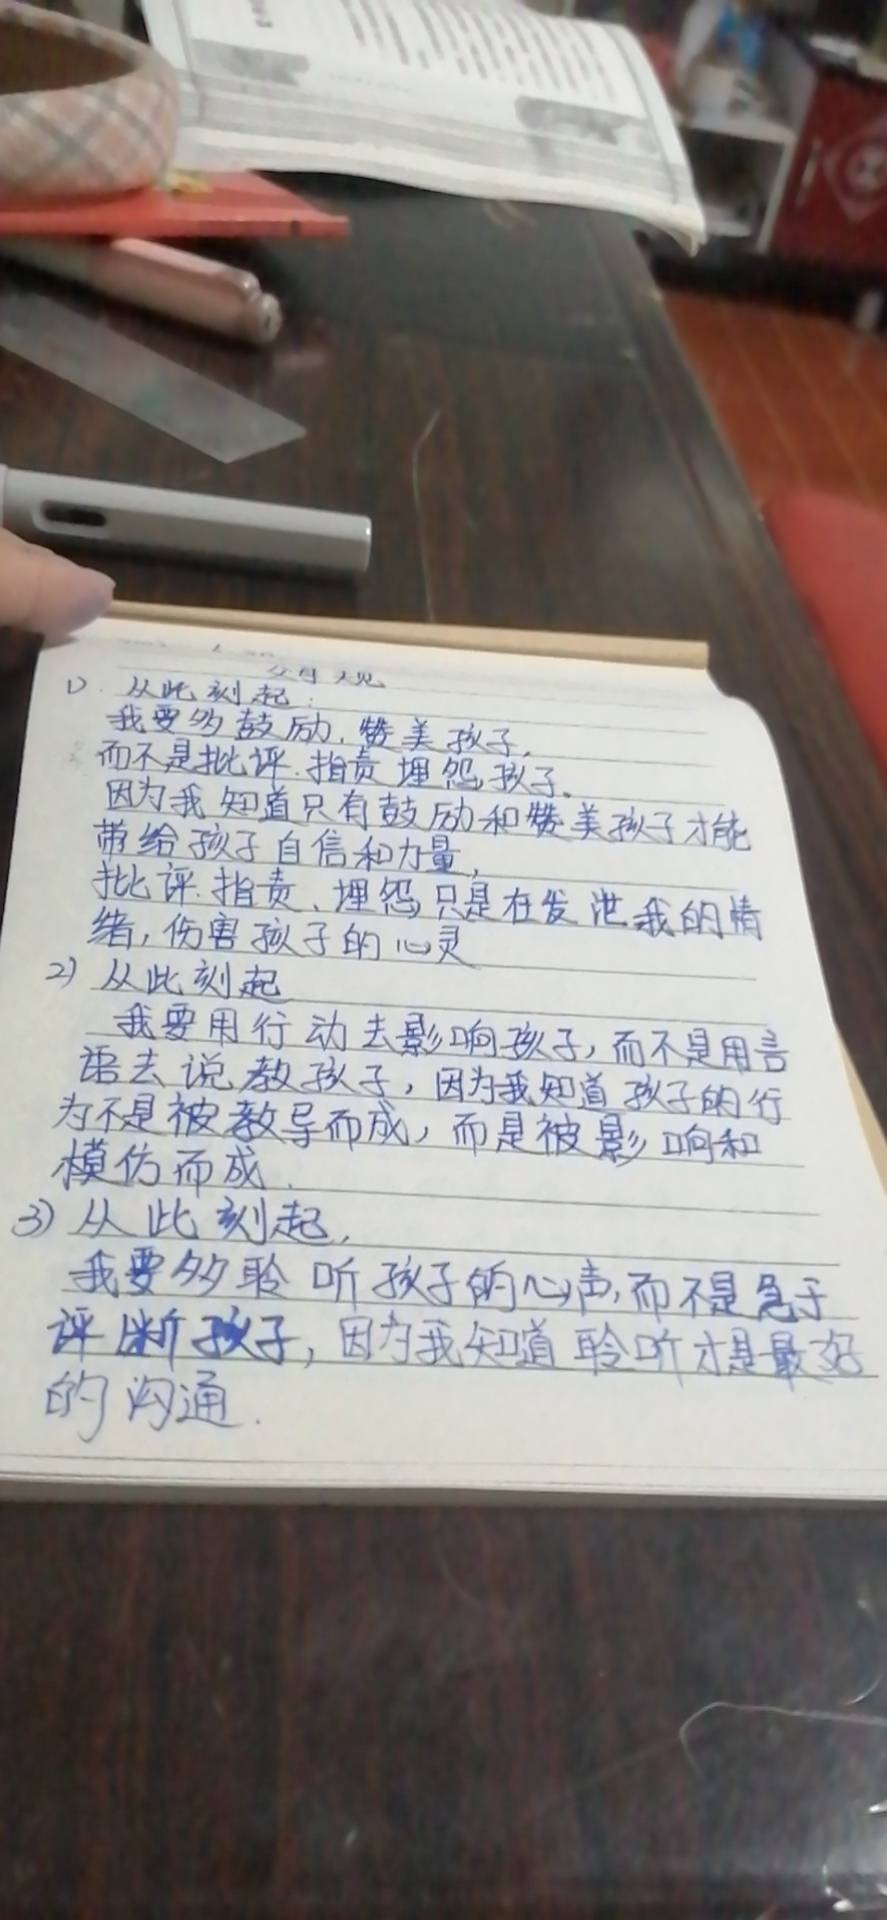 1). 从此刻起:
我要多鼓励、赞美孩子,
而不是批评.指责埋怨孩子。
因为我知道只有鼓励和赞美孩子才能
带给孩子自信和力量,
批评.指责、埋怨,只是在发泄我的情
绪,伤害孩子的心灵
2) 从此刻起
我要用行动去影响孩子,而不是用言
语去说教孩子,因为我知道孩子的行
为不是被教导而成,而是被影响和
模仿而成.
3) 从此刻起,
我要多聆听孩子的心声,而不是急于
评断孩子,因为我知道聆听才是最好
的沟通.